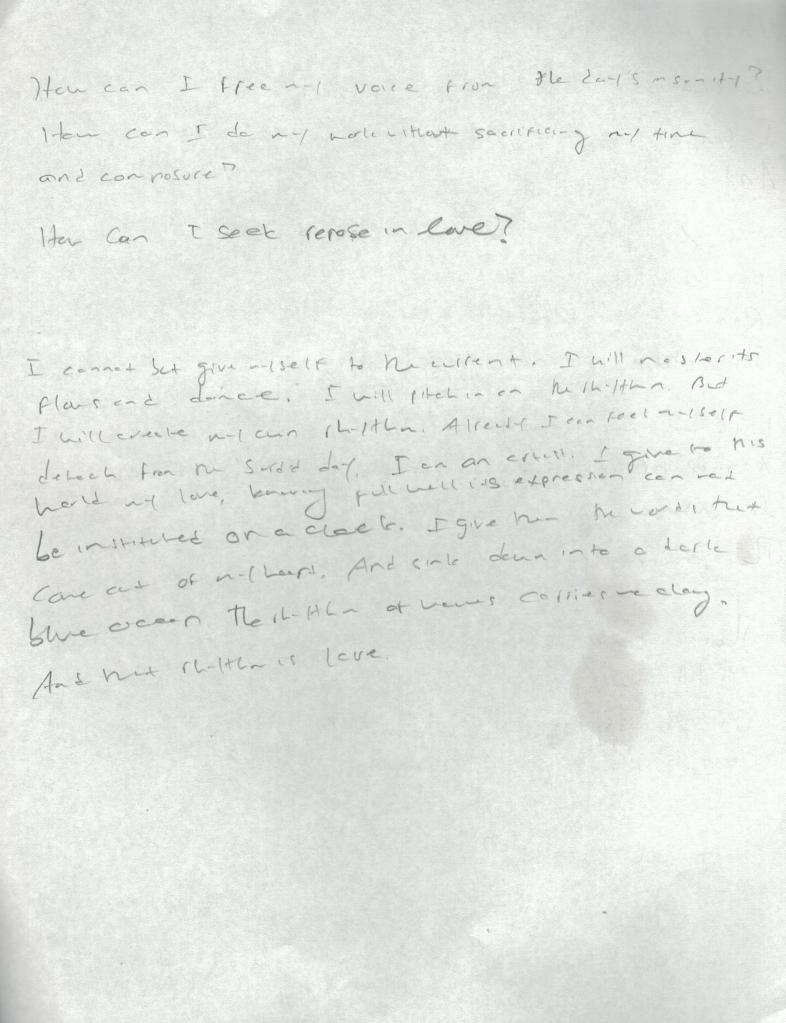 How can I free my voice from the day's insanity?
How can I do my work without sacrificing my time
and composure?
How can I seek repose in love?
I cannot but give myself to the current. I will master its
flows and dance. I will pitch in on the rhythm. But
I will create my own rhythm. Already I can feel myself
detach from the sordid day. I am an artist. I give to this
world my love, knowing full well its expression can not
be instituted on a clock. I give them the words that
come out of my heart. And sink down into a dark
blue ocean. The rhythm of waves carries me along.
And that rhythm is love.